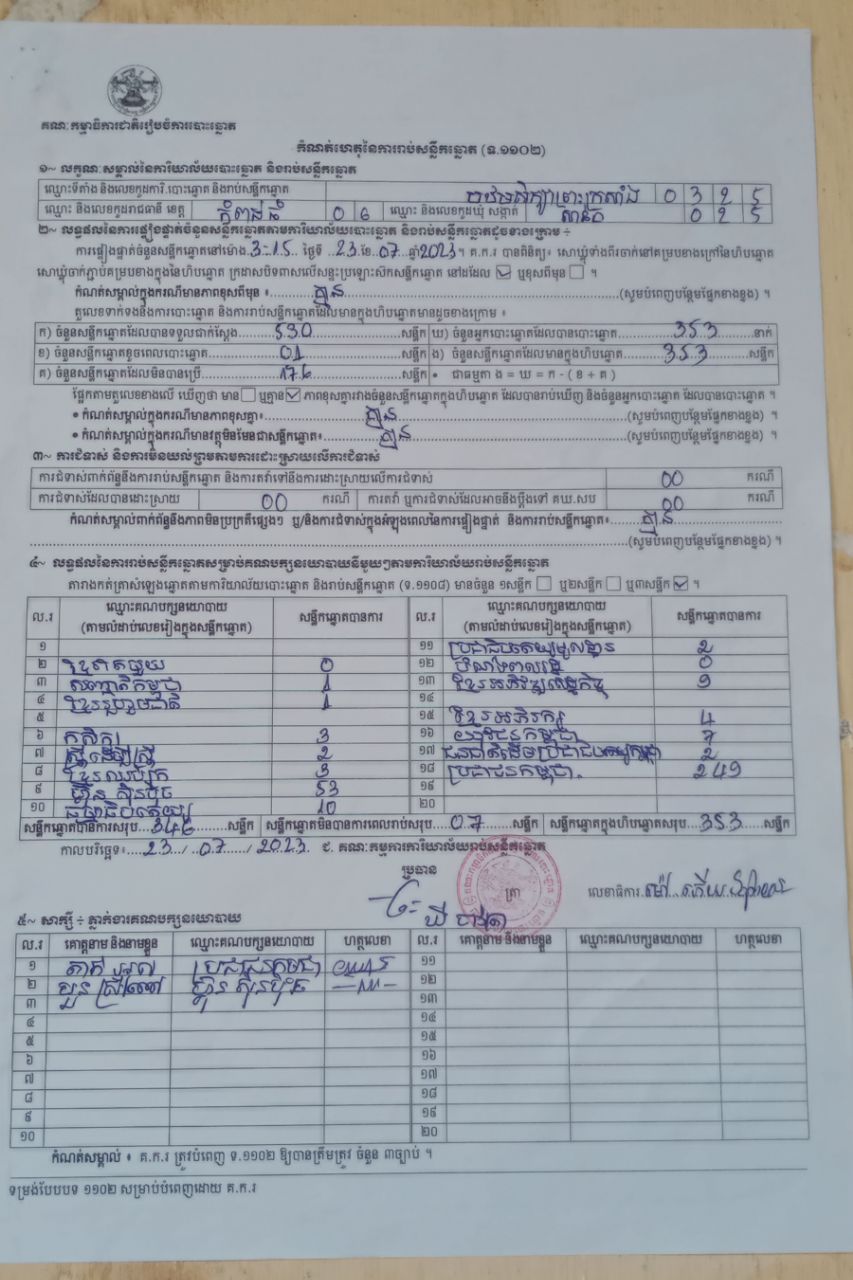 គណៈកម្មាធិការជាតិរៀបចំការបោះឆ្នោត
កំណត់ហេតុនៃការរាប់សន្លឹកឆ្នោត (ទ.១១០២)
១~ លក្ខណៈសម្គាល់នៃការិយាល័យបោះឆ្នោត និងរាប់សន្លឹកឆ្នោត
ឈ្មោះទីតាំង និងលេខកូដការិ.បោះឆ្នោត និងរាប់សន្លឹកឆ្នោត 0 3 2 5
ឈ្មោះ និងលេខកូដរាជធានី ខេត្ត កំពង់ធំ 0 6 ឈ្មោះ និងលេខកូដឃុំ សង្កាត់ 0 2 5
២~ លទ្ធផលនៃការផ្ទៀងផ្ទាត់ចំនួនសន្លឹកឆ្នោតតាមការិយាល័យបោះឆ្នោត និងរាប់សន្លឹកឆ្នោតដូចខាងក្រោម ÷
ការផ្ទៀងផ្ទាត់ចំនួនសន្លឹកឆ្នោតនៅម៉ោង.3-15. ថ្ងៃទី ..23.ខែ.07..ឆ្នាំ2023។ គ.ក.រ បានពិនិត្យ៖ សោឃ្លុំទាំងពីរចាក់នៅគម្របខាងក្រៅនៃហិបឆ្នោត
សោឃ្លុំចាក់ភ្ជាប់គម្របខាងក្នុងនៃហិបឆ្នោត ក្រដាសបិទពាសលើសន្ទះប្រឡោះសិកសន្លឹកឆ្នោត នៅដដែល ☑ ឬខុសពីមុន ☐ ។
កំណត់សម្គាល់ក្នុងករណីមានភាពខុសពីមុន ៖ គ្មាន (សូមបំពេញបន្ថែមផ្នែកខាងខ្នង) ។
តួលេខទាក់ទងនឹងការបោះឆ្នោត និងការរាប់សន្លឹកឆ្នោតដែលមានក្នុងហិបឆ្នោតមានដូចខាងក្រោម ៖
ក) ចំនួនសន្លឹកឆ្នោតដែលបានទទួលជាក់ស្តែង 530 សន្លឹក ឃ) ចំនួនអ្នកបោះឆ្នោតដែលបានបោះឆ្នោត 353 នាក់
ខ) ចំនួនសន្លឹកឆ្នោតខូចពេលបោះឆ្នោត 01 សន្លឹក ង) ចំនួនសន្លឹកឆ្នោតដែលមានក្នុងហិបឆ្នោត 353 សន្លឹក
គ) ចំនួនសន្លឹកឆ្នោតដែលមិនបានប្រើ 176 សន្លឹក • ជាធម្មតា ង = ឃ = ក - ( ខ + គ )
ផ្អែកតាមតួលេខខាងលើ ឃើញថា មាន ☐ ឬគ្មាន ☑ ភាពខុសគ្នារវាងចំនួនសន្លឹកឆ្នោតក្នុងហិបឆ្នោត ដែលបានរាប់ឃើញ និងចំនួនអ្នកបោះឆ្នោត ដែលបានបោះឆ្នោត ។
• កំណត់សម្គាល់ក្នុងករណីមានភាពខុសគ្នា៖ គ្មាន (សូមបំពេញបន្ថែមផ្នែកខាងខ្នង) ។
• កំណត់សម្គាល់ក្នុងករណីមានវត្ថុមិនមែនជាសន្លឹកឆ្នោត៖ គ្មាន (សូមបំពេញបន្ថែមផ្នែកខាងខ្នង) ។
៣~ ការជំទាស់ និងការមិនយល់ព្រមតាមការដោះស្រាយលើការជំទាស់
ការជំទាស់ពាក់ព័ន្ធនឹងការរាប់សន្លឹកឆ្នោត និងការតវ៉ាទៅនឹងការដោះស្រាយលើការជំទាស់ 00 ករណី
ការជំទាស់ដែលបានដោះស្រាយ 00 ករណី ការតវ៉ា ឬការជំទាស់ដែលអាចនឹងប្តឹងទៅ គឃ.សប 00 ករណី
កំណត់សម្គាល់ពាក់ព័ន្ធនឹងភាពមិនប្រក្រតីផ្សេងៗ ឬ/និងការជំទាស់ក្នុងអំឡុងពេលនៃការផ្ទៀងផ្ទាត់ និងការរាប់សន្លឹកឆ្នោត៖ គ្មាន
(សូមបំពេញបន្ថែមផ្នែកខាងខ្នង) ។
៤~ លទ្ធផលនៃការរាប់សន្លឹកឆ្នោតសម្រាប់គណបក្សនយោបាយនីមួយៗតាមការិយាល័យរាប់សន្លឹកឆ្នោត
តារាងកត់ត្រាសំឡេងឆ្នោតតាមការិយាល័យបោះឆ្នោត និងរាប់សន្លឹកឆ្នោត (ទ.១១០៨) មានចំនួន ១សន្លឹក ☐ ឬ២សន្លឹក ☐ ឬ៣សន្លឹក ☑ ។
ល.រ ឈ្មោះគណបក្សនយោបាយ (តាមលំដាប់លេខរៀងក្នុងសន្លឹកឆ្នោត) សន្លឹកឆ្នោតបានការ ល.រ ឈ្មោះគណបក្សនយោបាយ (តាមលំដាប់លេខរៀងក្នុងសន្លឹកឆ្នោត) សន្លឹកឆ្នោតបានការ
១ ១១ ប្រជាធិបតេយ្យមូលដ្ឋាន 2
២ 0 ១២ 0
៣ សញ្ជាតិកម្ពុជា 1 ១៣ ខ្មែរអភិវឌ្ឍសេដ្ឋកិច្ច 9
៤ ខ្មែររួបរួមជាតិ 1 ១៤
៥ ១៥ ខ្មែរអភិរក្ស 4
៦ កសិករ 3 ១៦ យុវជនកម្ពុជា 7
៧ ស្ត្រីដើម្បីស្ត្រី 2 ១៧ ជនជាតិដើមប្រជាធិបតេយ្យកម្ពុជា 2
៨ ខ្មែរឈប់ក្រ 3 ១៨ ប្រជាជនកម្ពុជា 249
៩ ហ្វ៊ុនស៊ិនប៉ិច 53 ១៩
១០ ធម្មាធិបតេយ្យ 10 ២០
សន្លឹកឆ្នោតបានការសរុប 346 សន្លឹក សន្លឹកឆ្នោតមិនបានការពេលរាប់សរុប 07 សន្លឹក សន្លឹកឆ្នោតក្នុងហិបឆ្នោតសរុប 353 សន្លឹក
កាលបរិច្ឆេទ៖ 23 / 07 / 2023 ជ. គណៈកម្មការការិយាល័យរាប់សន្លឹកឆ្នោត
ប្រធាន
ត្រា លេខាធិការ
៥~ សាក្សី ÷ ភ្នាក់ងារគណបក្សនយោបាយ
ល.រ គោត្តនាម និងនាមខ្លួន ឈ្មោះគណបក្សនយោបាយ ហត្ថលេខា ល.រ គោត្តនាម និងនាមខ្លួន ឈ្មោះគណបក្សនយោបាយ ហត្ថលេខា
១ ប្រជាជនកម្ពុជា ១១
២ ហ្វ៊ុនស៊ិនប៉ិច ១២
៣ ១៣
៤ ១៤
៥ ១៥
៦ ១៦
៧ ១៧
៨ ១៨
៩ ១៩
១០ ២០
កំណត់សម្គាល់ ៖ គ.ក.រ ត្រូវបំពេញ ទ.១១០២ ឱ្យបានត្រឹមត្រូវ ចំនួន ៣ច្បាប់ ។
ទម្រង់បែបបទ ១១០២ សម្រាប់បំពេញដោយ គ.ក.រ